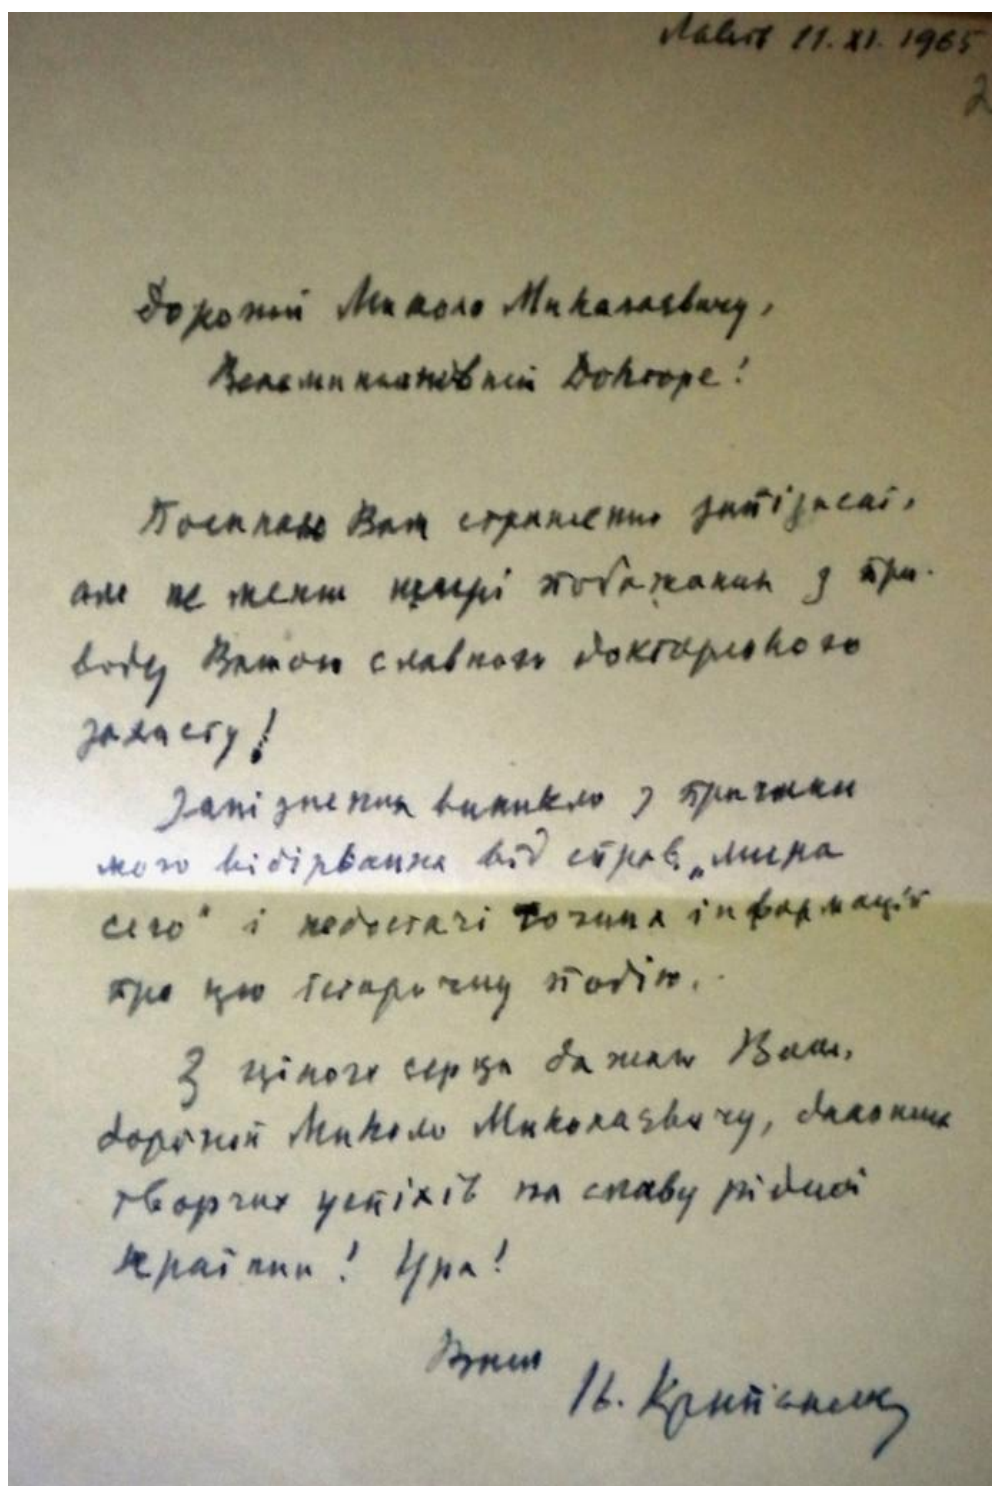 Львів 11.XI.1965
2
Дорогий Миколо Миколаєвичу,
Вельмишановний Докторе!
Посилаю Вам страшенно запізнені,
але не менш щирі побажання з при-
воду Вашого славного докторського
захисту!
Запізнення виникло з причини
мого відірвання від справ „мира
сего“ і недостачі точних інформацій
про цю історичну подію.
З цілого серця бажаю Вам,
дорогий Миколо Миколаєвичу, дальших
творчих успіхів на славу рідної
країни! Ура!
Ваш
Ів. Крип'якевич